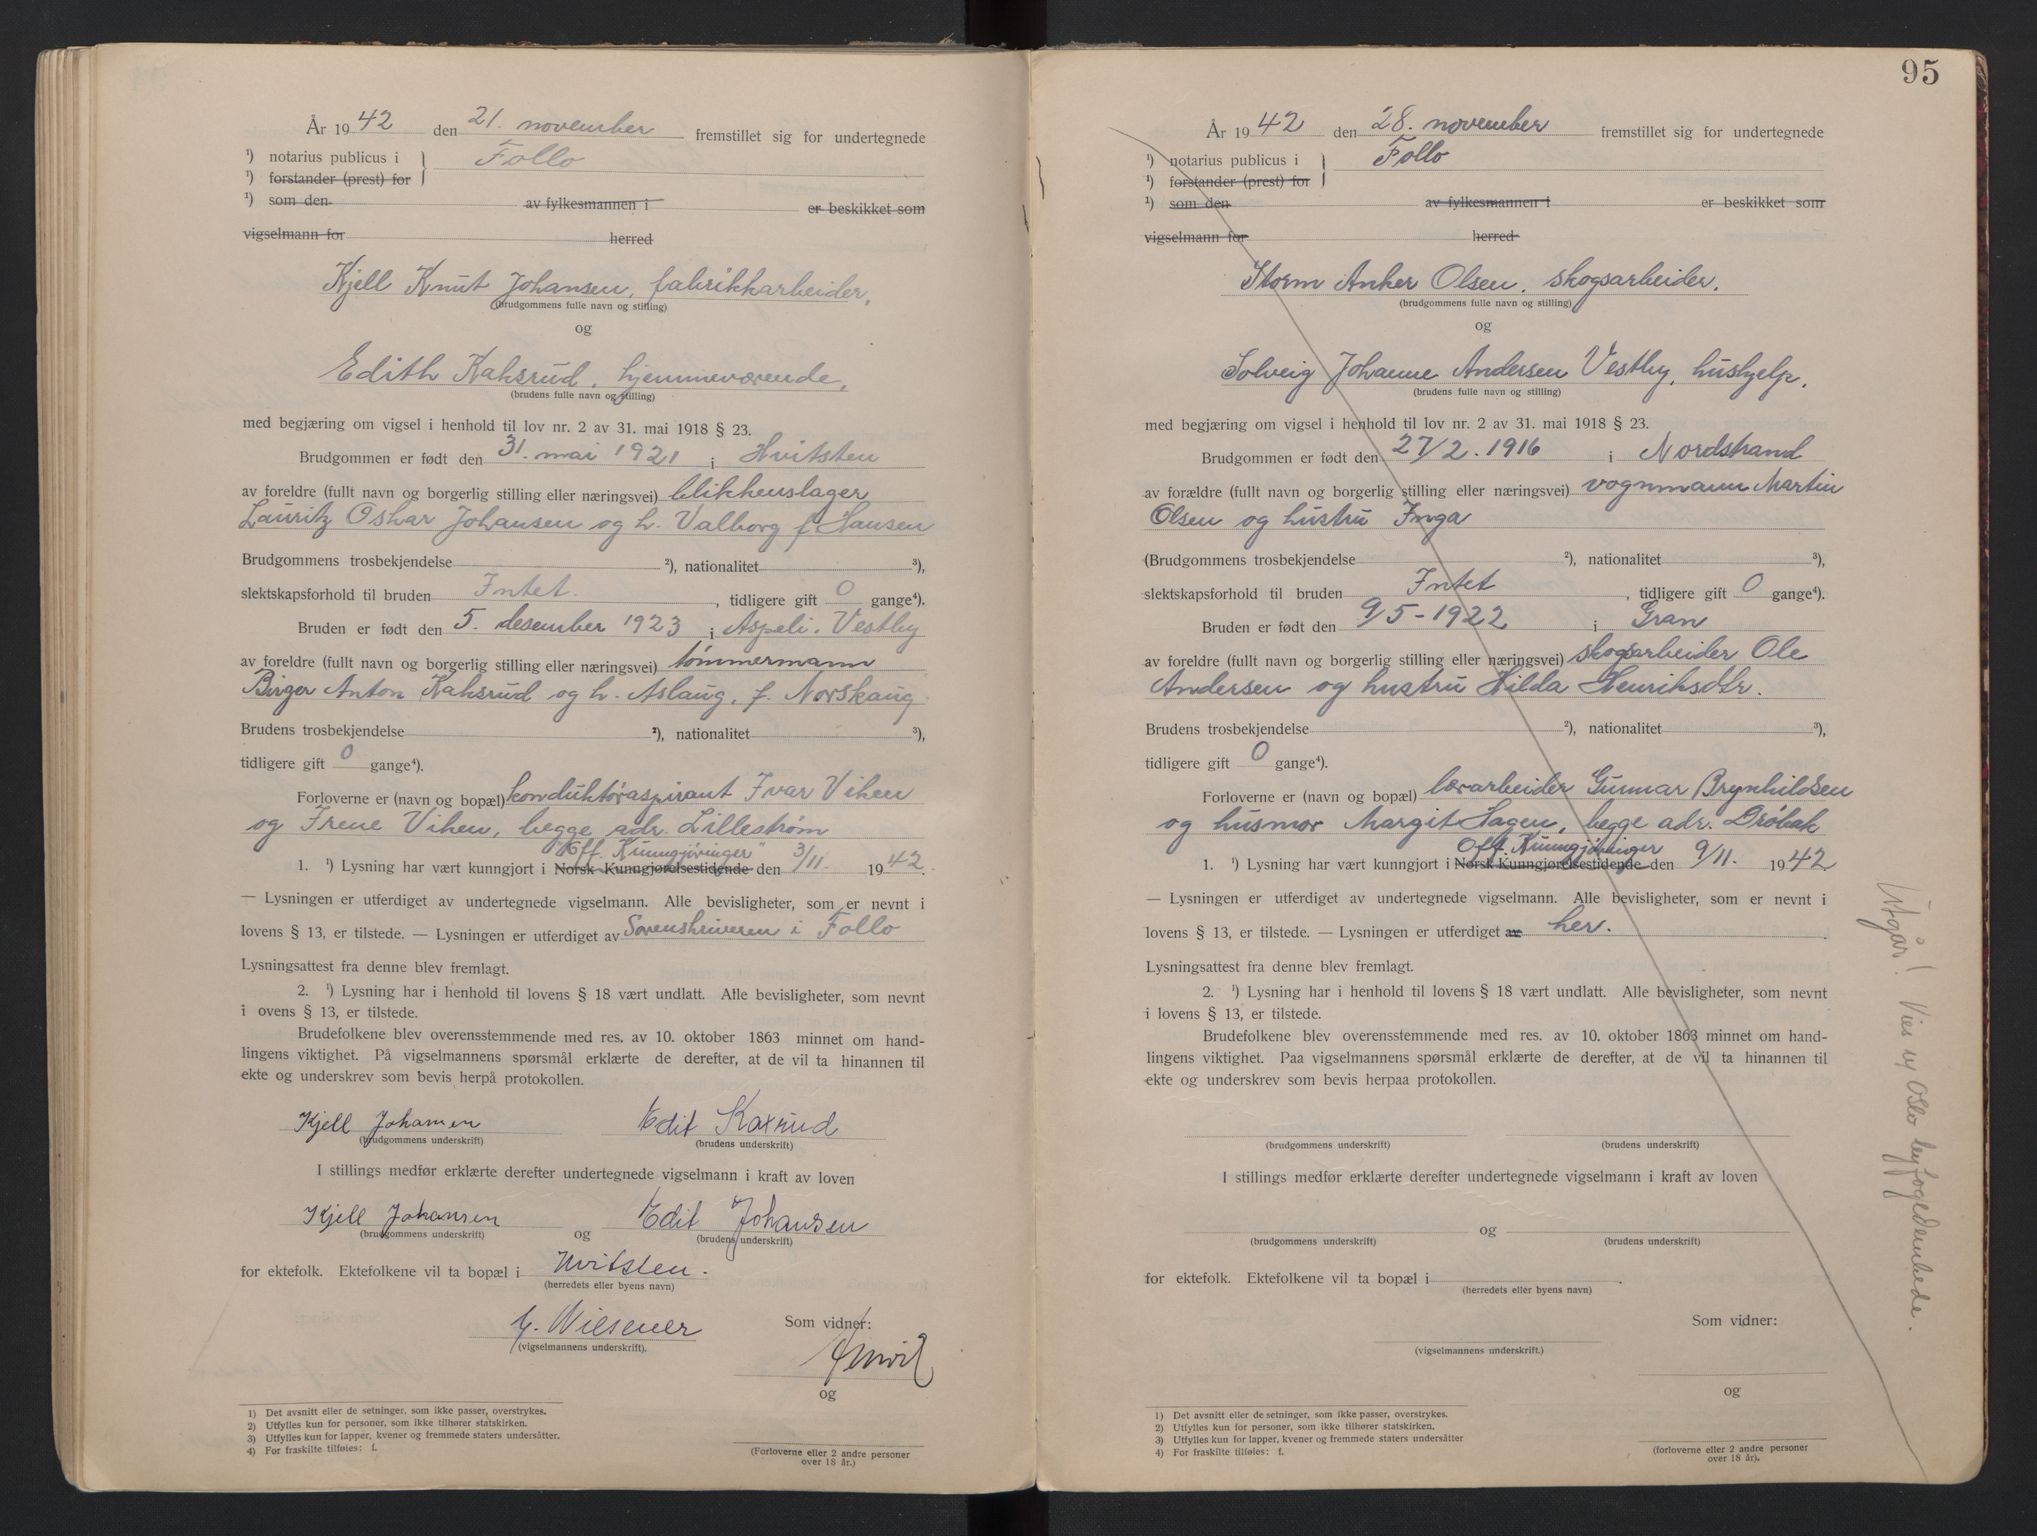 År 1942 den 21. november fremstillet sig for undertegnede
¹) notarius publicus i Follo
¹) forstander (prest) for
¹) som den av fylkesmannen i er beskikket som
vigselmann for herred
Kjell Knut Johansen, fabrikkarbeider,
(brudgommens fulle navn og stilling)
og
Edith Kahsrud, hjemmeværende,
(brudens fulle navn og stilling)
med begjæring om vigsel i henhold til lov nr. 2 av 31. mai 1918 § 23.
Brudgommen er født den 31. mai 1921 i Hvitsten
av foreldre (fullt navn og borgerlig stilling eller næringsvei) blikkenslager
Lauritz Oskar Johansen og h. Valborg f. Hansen
Brudgommens trosbekjendelse ²), nationalitet ³),
slektskapsforhold til bruden Intet. , tidligere gift 0 gange⁴).
Bruden er født den 5. desember 1923 i Aspeli. Vestby
av foreldre (fullt navn og borgerlig stilling eller næringsvei) tømmermann
Birger Anton Kahsrud og h. Aslaug, f. Norskaug
Brudens trosbekjendelse ²), nationalitet ³),
tidligere gift 0 gange⁴).
Forloverne er (navn og bopæl) konduktøraspirant Ivar Viken
og Irene Viken, begge adr. Lillestrøm
"Off. Kunngjøringer"
1. ¹) Lysning har vært kunngjort i Norsk Kunngjørelsestidende den 3/11. 1942.
— Lysningen er utferdiget av undertegnede vigselmann. Alle bevisligheter, som er nevnt i
lovens § 13, er tilstede. — Lysningen er utferdiget av Sorenskriveren i Follo
Lysningsattest fra denne blev fremlagt.
2. ¹) Lysning har i henhold til lovens § 18 vært undlatt. Alle bevisligheter, som nevnt
i ovens § 13, er tilstede.
Brudefolkene blev overensstemmende med res. av 10. oktober 1863 minnet om hand-
lingens viktighet. På vigselmannens spørsmål erklærte de derefter, at de vil ta hinannen til
ekte og underskrev som bevis herpå protokollen.
Kjell Johansen Edit Kaxrud
(brudgommens underskrift) (brudens underskrift)
I stillings medfør erklærte derefter undertegnede vigselmann i kraft av loven
Kjell Johansen og Edit Johansen
(brudgommens underskrift) (brudens underskrift)
for ektefolk. Ektefolkene vil ta bopæl i Hvitsten.
(herredets eller byens navn)
Wiesener Som vidner:
(vigselmannens underskrift).
og
1) Det avsnitt eller de setninger, som ikke passer, overstrykes.
2) Utfylles kun for personer, som ikke tilhører statskirken.
3) Utfylles kun for lapper, kvener og fremmede staters undersåtter.
4) For fraskilte tilføies: f.
(Forloverne eller 2 andre personer
over 18 år.)
95
År 1942 den 28. november fremstillet sig for undertegnede
¹) notarius publicus i Follo
¹) forstander (prest) for
¹) som den av fylkesmannen i er beskikket som
vigselmann for herred
Storm Anker Olsen, skogsarbeider.
(brudgommens fulle navn og stilling)
og
Solveig Johanne Andersen Vestby, hushjelp.
(brudens fulle navn og stilling)
med begjæring om vigsel i henhold til lov nr. 2 av 31. mai 1918 § 23.
Brudgommen er født den 27/2. 1916 i Nordstrand
av forældre (fullt navn og borgerlig stilling eller næringsvei) vognmann Martin
Olsen og hustru Inga
(Brudgommens trosbekjendelse ²), nationalitet ³),
slektskapsforhold til bruden Intet , tidligere gift 0 gange⁴).
Bruden er født den 9/5-1922 i Gran
av foreldre (fullt navn og borgerlig stilling eller næringsvei) skogsarbeider Ole
Andersen og hustru Hilda Henriksdtr.
Brudens trosbekjendelse ²), nationalitet ³),
tidligere gift 0 gange⁴).
Forloverne er (navn og bopæl) lærarbeider Gunnar Brynhildsen
og husmor Margit Hagen, begge adr. Drøbak
Off. Kunngjøringer
1. ¹) Lysning har vært kunngjort i Norsk Kunngjørelsestidende den 9/11. 1942
— Lysningen er utferdiget av undertegnede vigselmann. Alle bevisligheter, som er nevnt i
lovens § 13, er tilstede. — Lysningen er utferdiget av her.
Lysningsattest fra denne blev fremlagt.
2. ¹) Lysning har i henhold til lovens § 18 vært undlatt. Alle bevisligheter, som nevnt
i lovens § 13, er tilstede.
Brudefolkene blev overensstemmende med res. av 10. oktober 1863 minnet om hand-
lingens viktighet. Paa vigselmannens spørsmål erklærte de derefter, at de vil ta hinannen til
ekte og underskrev som bevis herpaa protokollen.
(brudgommens underskrift) (brudens underskrift)
I stillings medfør erklærte derefter undertegnede vigselmann i kraft av loven
og
(brudgommens underskrift) (brudens underskrift)
for ektefolk. Ektefolkene vil ta bopæl i .
(herredets eller byens navn)
Som vidner:
(vigselmannens underskrift.)
og
1) Det avsnitt eller de setninger, som ikke passer, overstrykes.
2) Utfylles kun for personer, som ikke tilhører statskirken.
3) Utfylles kun for lapper, kvener og fremmede staters undersåtter
4) For fraskilte tilføies: f.
(forloverne eller 2 andre personer
over 18 år).
Utgår! Vies v/ Oslo byfogedembede.